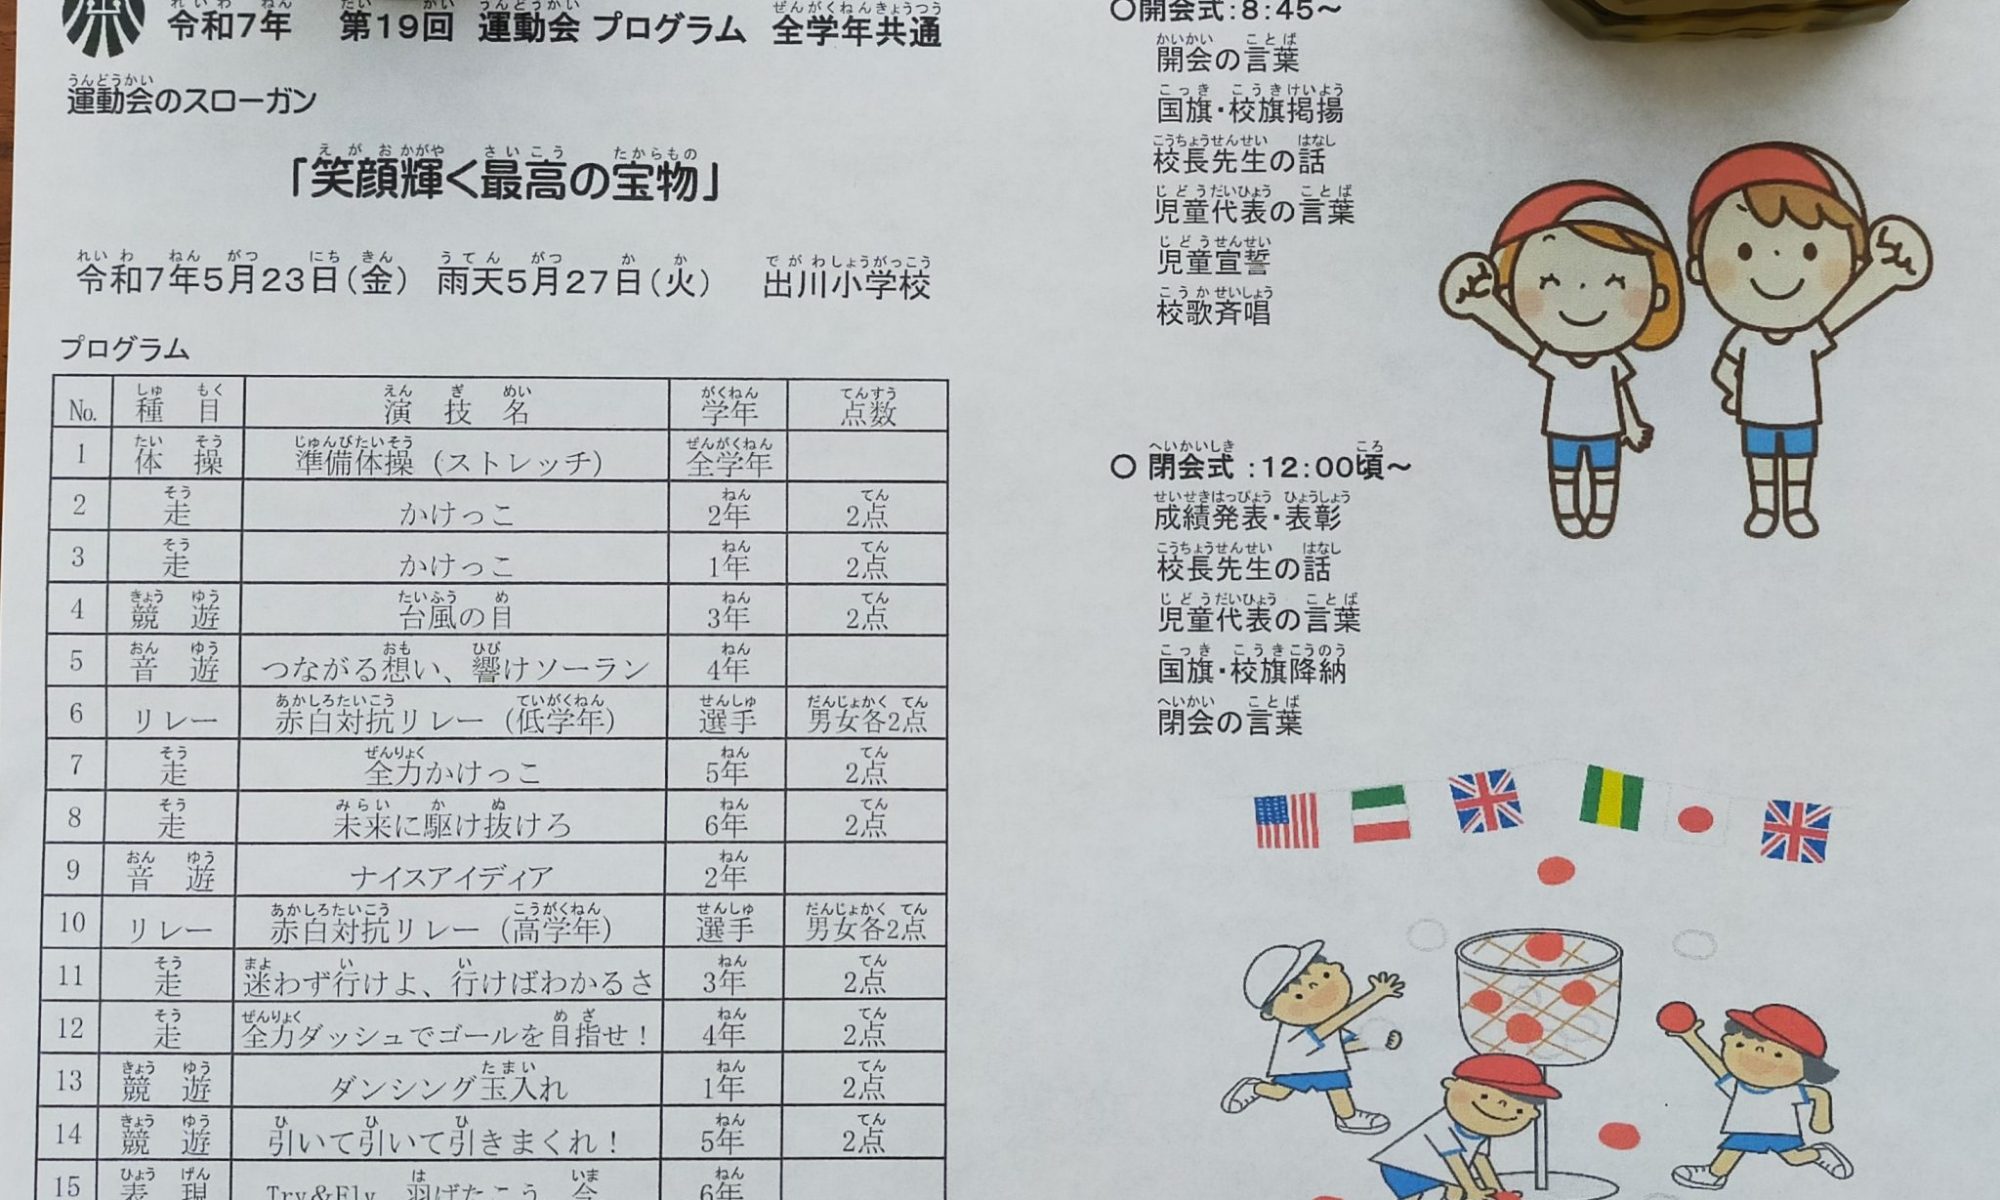 令和7年 第19回 運動会 プログラム 全学年共通
運動会のスローガン
「笑顔輝く最高の宝物」
令和7年5月23日(金) 雨天5月27日(火) 出川小学校
プログラム
No. 種目 演技名 学年 点数
1 体操 準備体操(ストレッチ) 全学年
2 走 かけっこ 2年 2点
3 走 かけっこ 1年 2点
4 競遊 台風の目 3年 2点
5 音遊 つながる想い、響けソーラン 4年
6 リレー 赤白対抗リレー(低学年) 選手 男女各2点
7 走 全力かけっこ 5年 2点
8 走 未来に駆け抜けろ 6年 2点
9 音遊 ナイスアイディア 2年
10 リレー 赤白対抗リレー(高学年) 選手 男女各2点
11 走 迷わず行けよ、行けばわかるさ 3年 2点
12 走 全力ダッシュでゴールを目指せ! 4年 2点
13 競遊 ダンシング玉入れ 1年 2点
14 競遊 引いて引いて引きまくれ! 5年 2点
15 表現 Try&Fly 羽ばたこう 今 6年
〇開会式:8:45~
開会の言葉
国旗・校旗掲揚
校長先生の話
児童代表の言葉
児童宣誓
校歌斉唱
〇閉会式:12:00頃~
成績発表・表彰
校長先生の話
児童代表の言葉
国旗・校旗降納
閉会の言葉